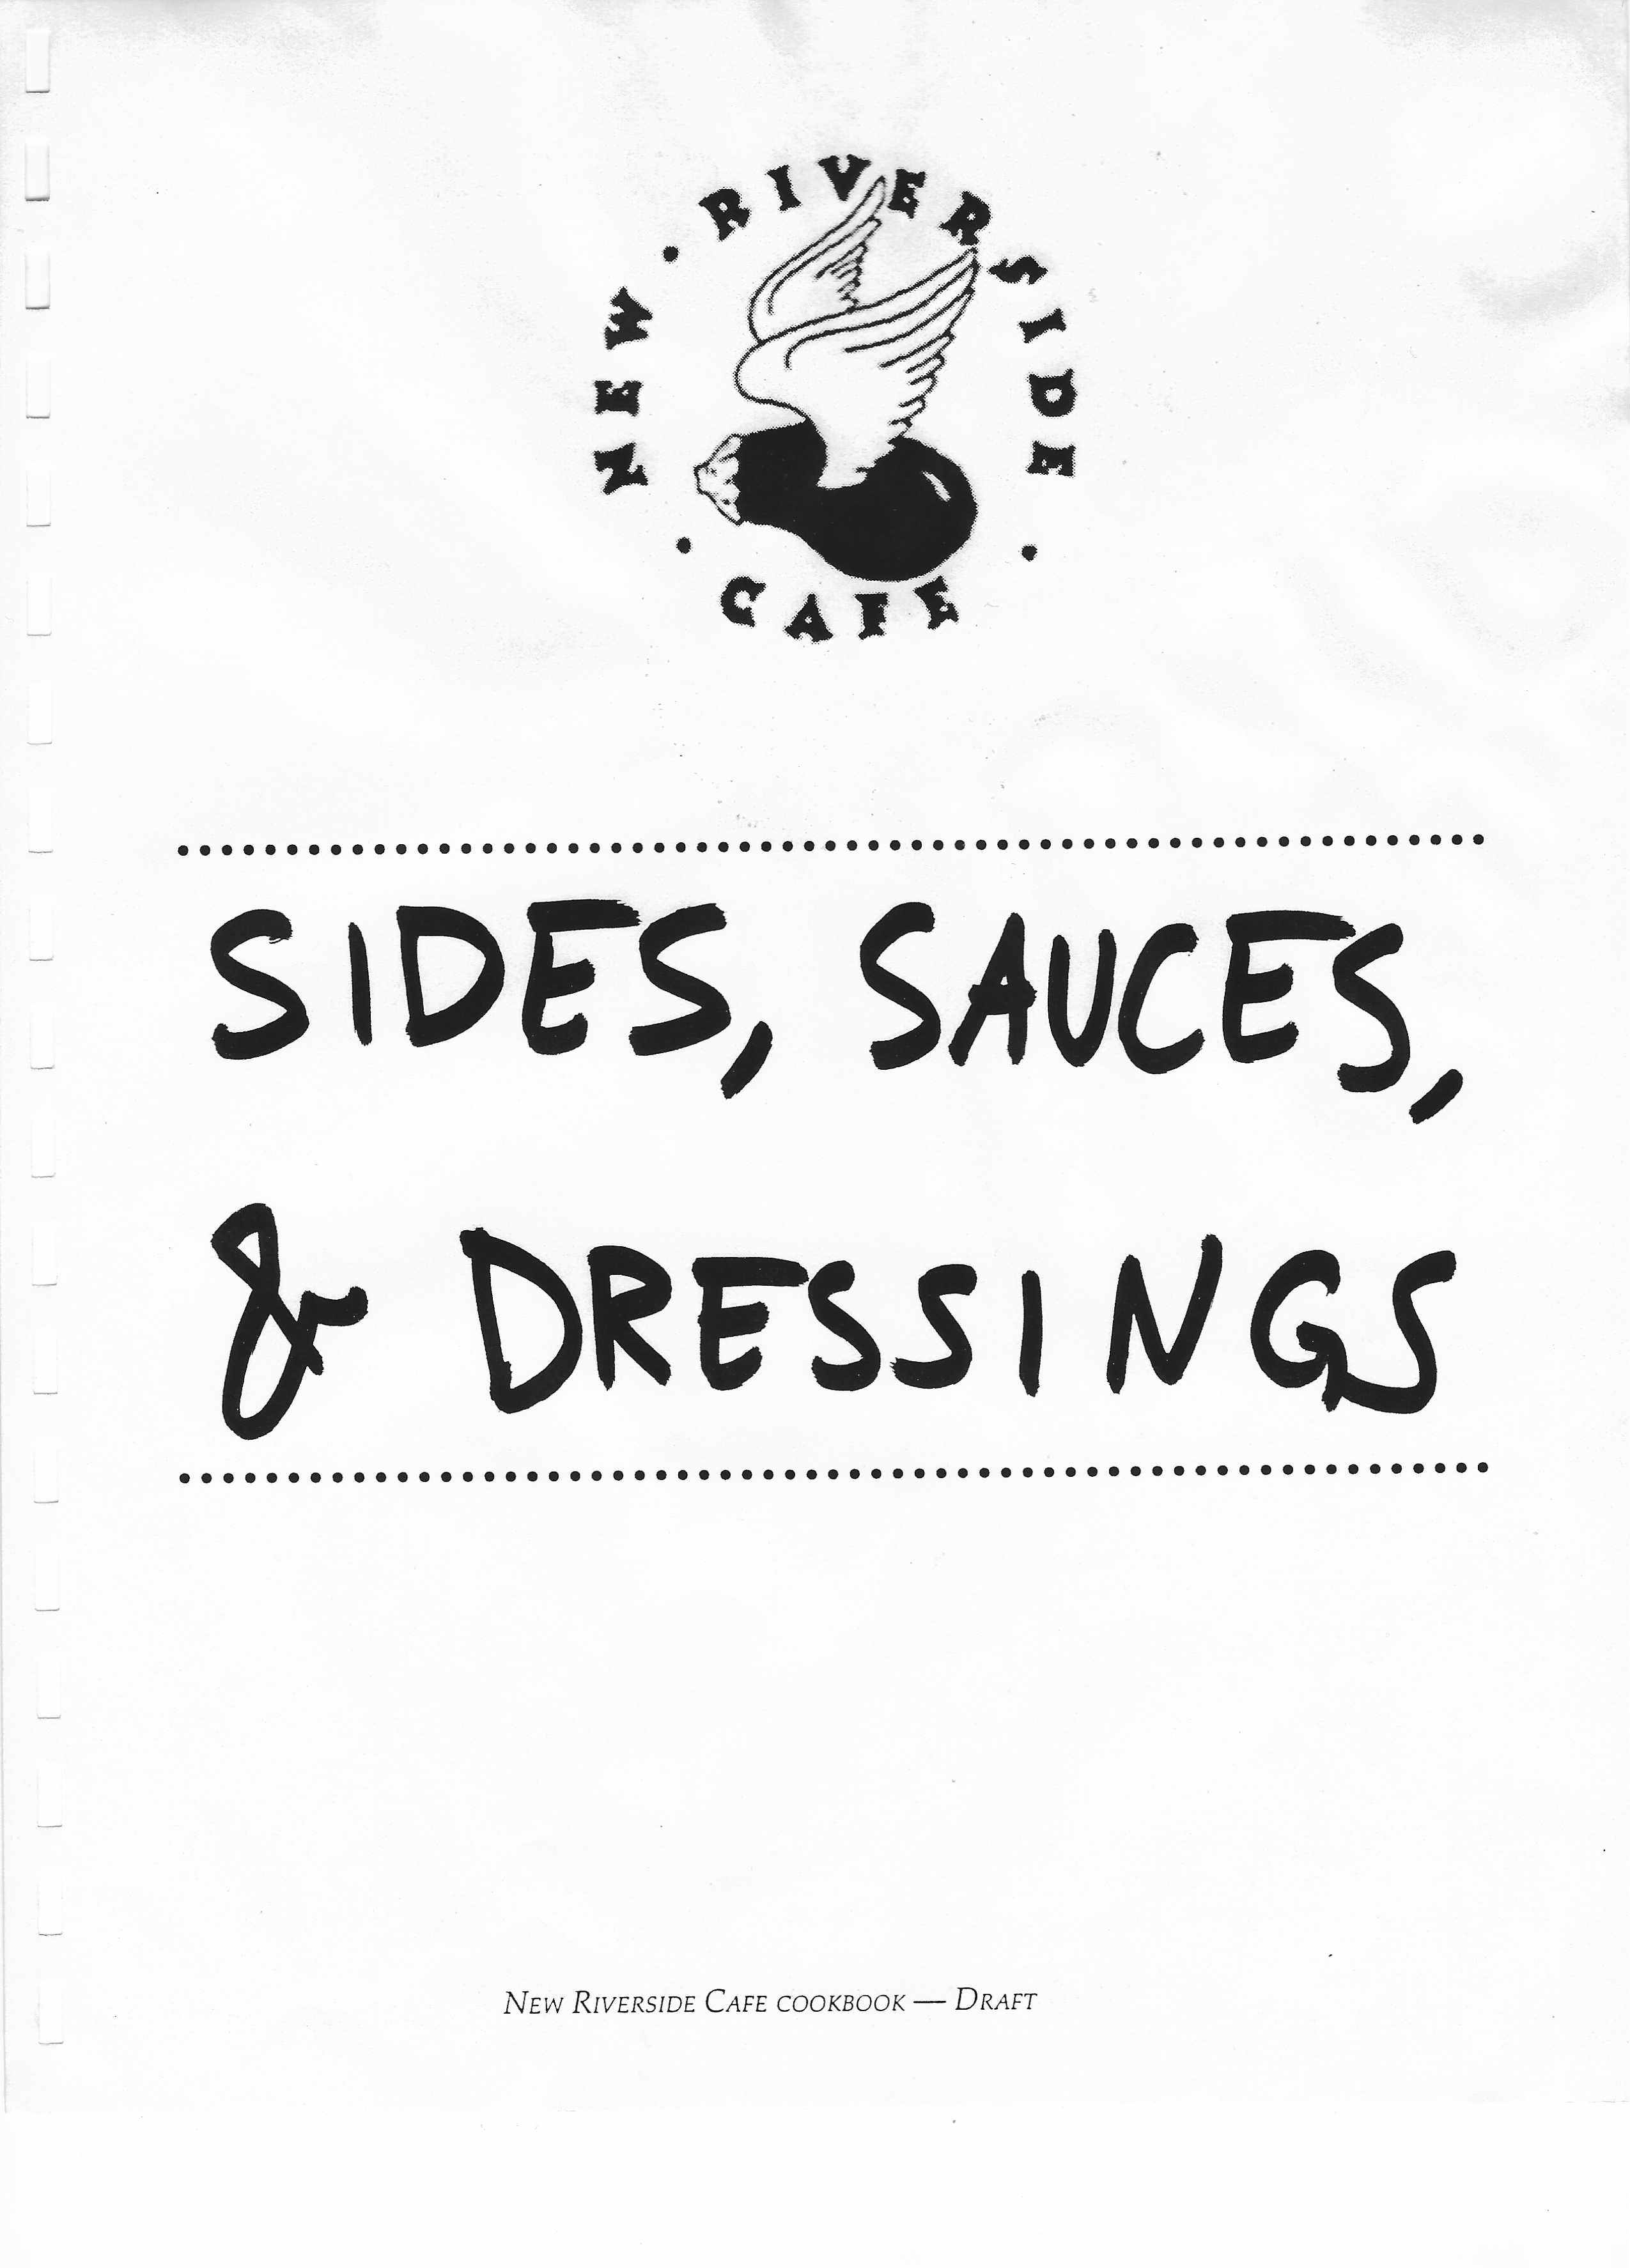 NEW · RIVERSIDE · CAFE ·
SIDES, SAUCES,
& DRESSINGS
NEW RIVERSIDE CAFE COOKBOOK — DRAFT